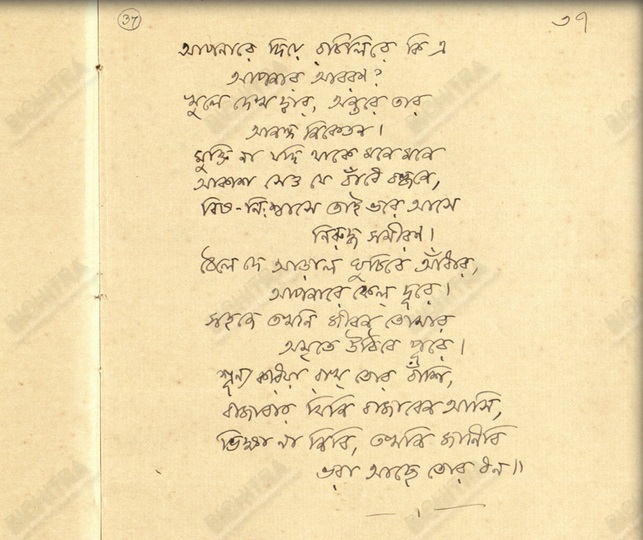 37
৩৭
আপনারে দিয়ে রচিলিরে কি এ
আপনার আবরণ?
খুলে দেখ দ্বার, অন্তরে তার
আনন্দ নিকেতন।
মুক্তি না যদি থাকে মনে মনে
আকাশ সেও যে বাঁধে বন্ধনে,
বিষ-নিঃশ্বাসে তাই ভরে আসে
নিরুদ্ধ সমীরণ।
ঠেলে দে আড়াল ঘুচিবে আঁধার,
আপনারে ফেল্ দূরে।
সহজে তখনি জীবন তোমার
অমৃতে উঠিবে পূরে।
শূন্য করিয়া রাখ্ তোর বাঁশি,
বাজাবার যিনি বাজাবেন আসি,
ভিক্ষা না নিবি, তখনি জানিবি
ভরা আছে তোর ধন॥